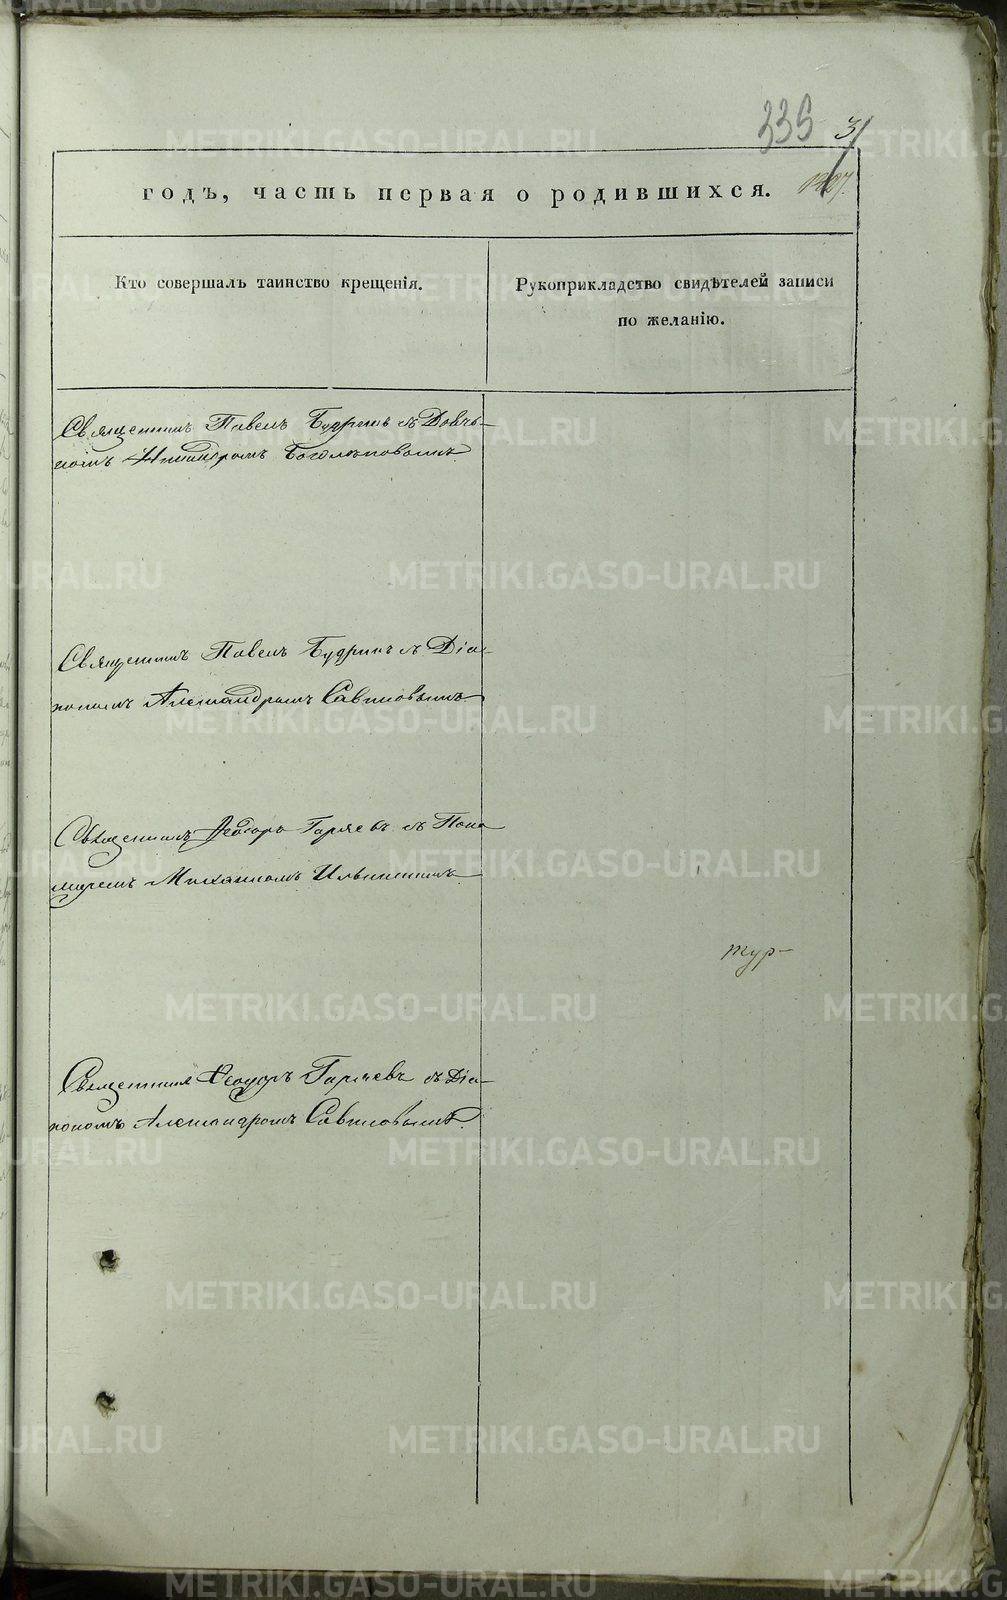 335
31
годъ, часть первая о родившихся.
Кто совершалъ таинство крещенія.
Рукоприкладство свидѣтелей записи
по желанію.
Священникъ Павелъ Будринъ съ Дьяч-
комъ Боголѣповымъ
Священникъ Павелъ Будринъ съ Діа-
кономъ Александромъ Савиновымъ.
Священникъ Ѳеодоръ Гаряевъ съ Поно
маремъ Михаиломъ
тур-
Священникъ Ѳеодоръ Гаряевъ съ Діа-
кономъ Александромъ Савиновымъ.
METRIKI.GASO-URAL.RU